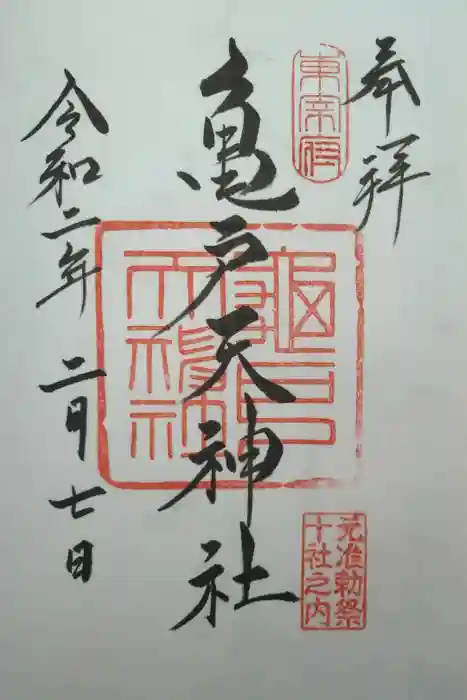 奉拝
東宰府
亀戸天神社
元准勅祭
十社之内
令和二年 二月七日